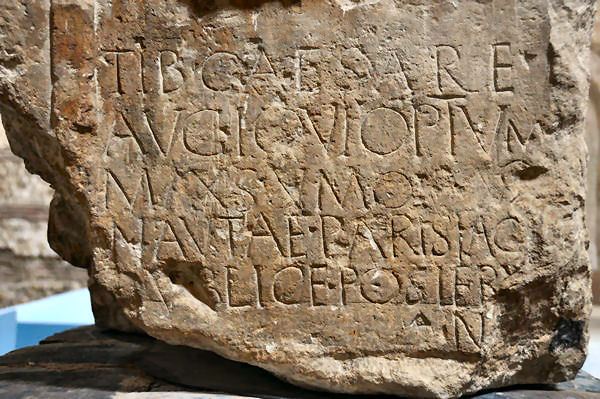 TIB·CAESARE·
AVG·IOVI OPTVM
MAXSVMO
NAVTAE·PARISIAC
LICE·POSIER
N